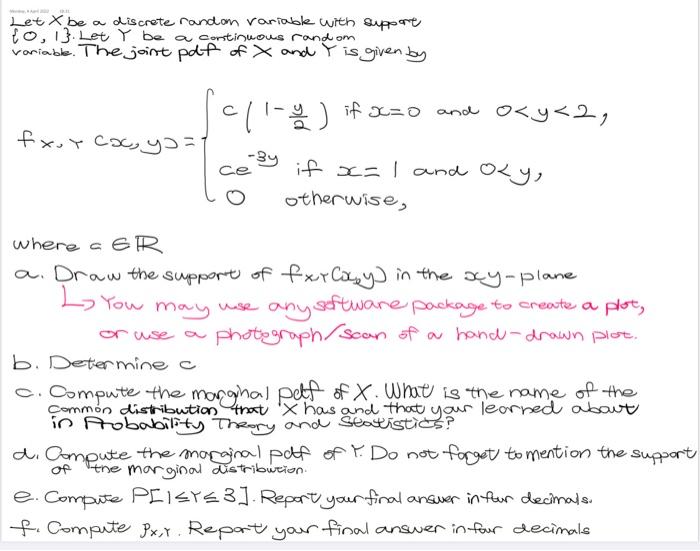 Monday, 4 April 2022
Let X be a discrete random variable with support
{0, 1}. Let Y be a continuous random
variable. The joint pdf of X and Y is given by
c(1-y/2) if x=0 and 0<y<2,
fx,Y (x,y)=
ce^-3y if x=1 and 0<y,
0 otherwise,
where c ∈ ℝ
a. Draw the support of fxY(x,y) in the xy-plane
↳ You may use any software package to create a plot,
or use a photograph/scan of a hand-drawn plot.
b. Determine c
c. Compute the marginal pdf of X. What is the name of the
common distribution that X has and that your learned about
in Probability Theory and Statistics?
d. Compute the marginal pdf of Y. Do not forget to mention the support
of the marginal distribution.
e. Compute P[1≤Y≤3]. Report your final answer in four decimals.
f. Compute ρx,Y. Report your final answer in four decimals